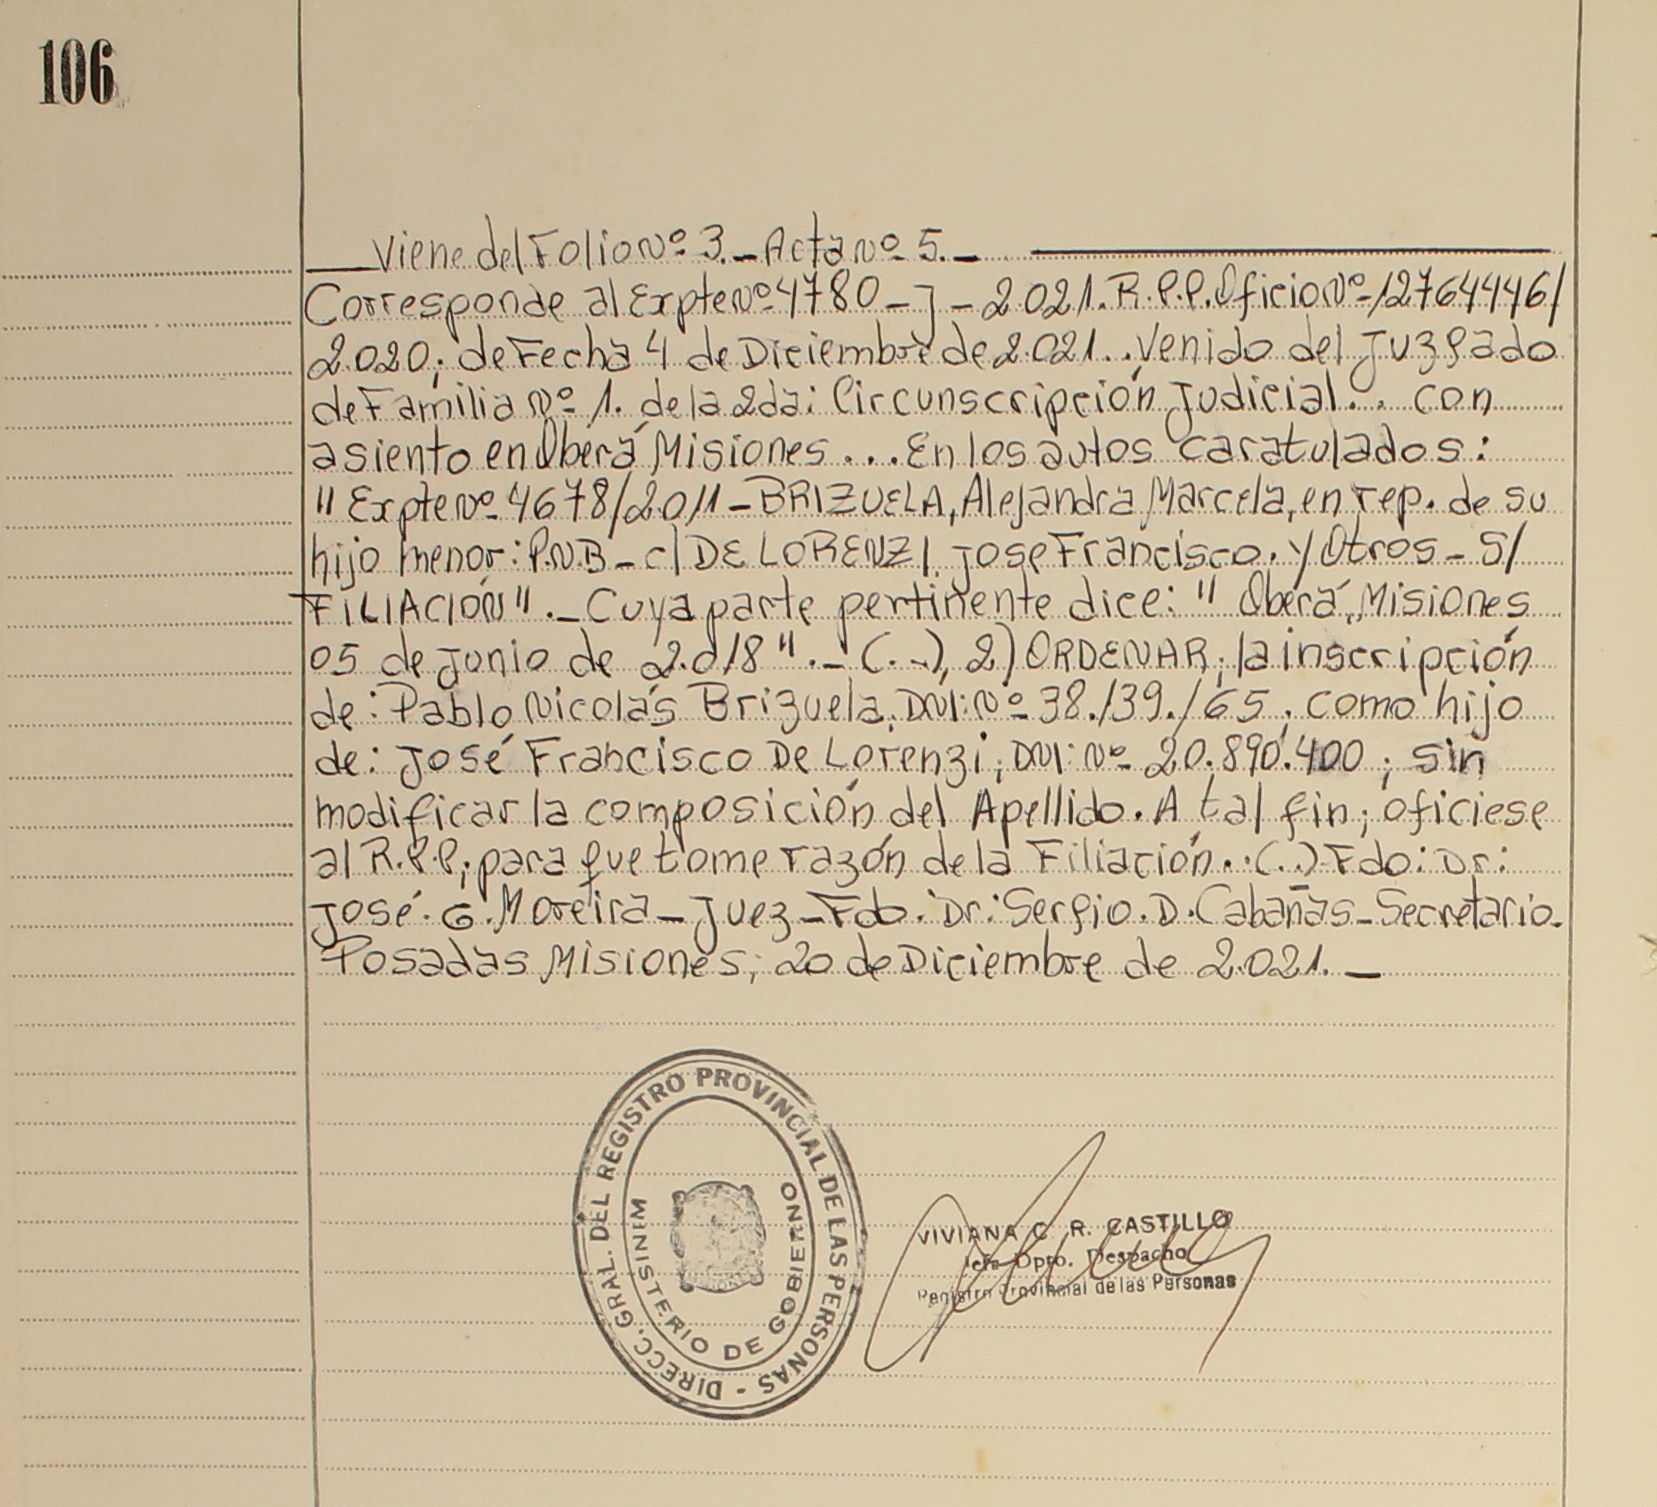 106
Viene del Folio Nº 3._ Acta Nº 5._
Corresponde al Expte Nº 4780_J_2.021. R.P.P. Oficio Nº 12764446/
2.020; de Fecha 4 de Diciembre de 2.021.. Venido del Juzgado
de Familia Nº 1. de la 2da: Circunscripción Judicial.. con
asiento en Oberá Misiones ... En los autos caratulados:
"Expte Nº 4678/2.011 – BRIZUELA, Alejandra Marcela, en rep. de su
hijo menor: P.N.B – c/ DE LORENZI, Jose Francisco. y Otros – S/
FILIACIÓN"._ Cuya parte pertinente dice: "Oberá, Misiones
05 de Junio de 2.018"._ (..), 2) ORDENAR; la inscripción
de: Pablo Nicolás Brizuela, DNI: Nº 38.139.165, como hijo
de: José Francisco De Lorenzi; DNI: Nº 20.890.400; sin
modificar la composición del Apellido. A tal fin; ofíciese
al R.P.P; para que tome razón de la Filiación..(..) Fdo: Dr:
José. G. Moreira – Juez – Fdo. Dr: Sergio. D. Cabañas – Secretario.
Posadas Misiones; 20 de Diciembre de 2.021._
DIRECC. GRAL. DEL REGISTRO PROVINCIAL DE LAS PERSONAS -
MINISTERIO DE GOBIERNO
VIVIANA C. R. CASTILLO
Jefe Dpto. Despacho
Registro Provincial de las Personas